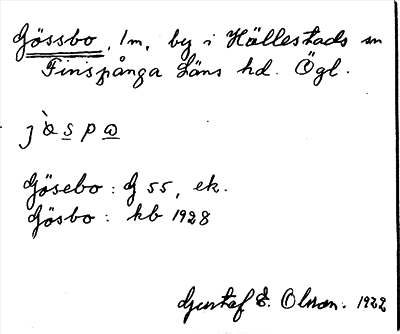 Gössbo, 1m, by i Hällestads sn
Finspånga Läns hd. Ögl.
Gösebo: G 55, ek.
Gösbo: kb 1928
Gustaf E. Olsson. 1922